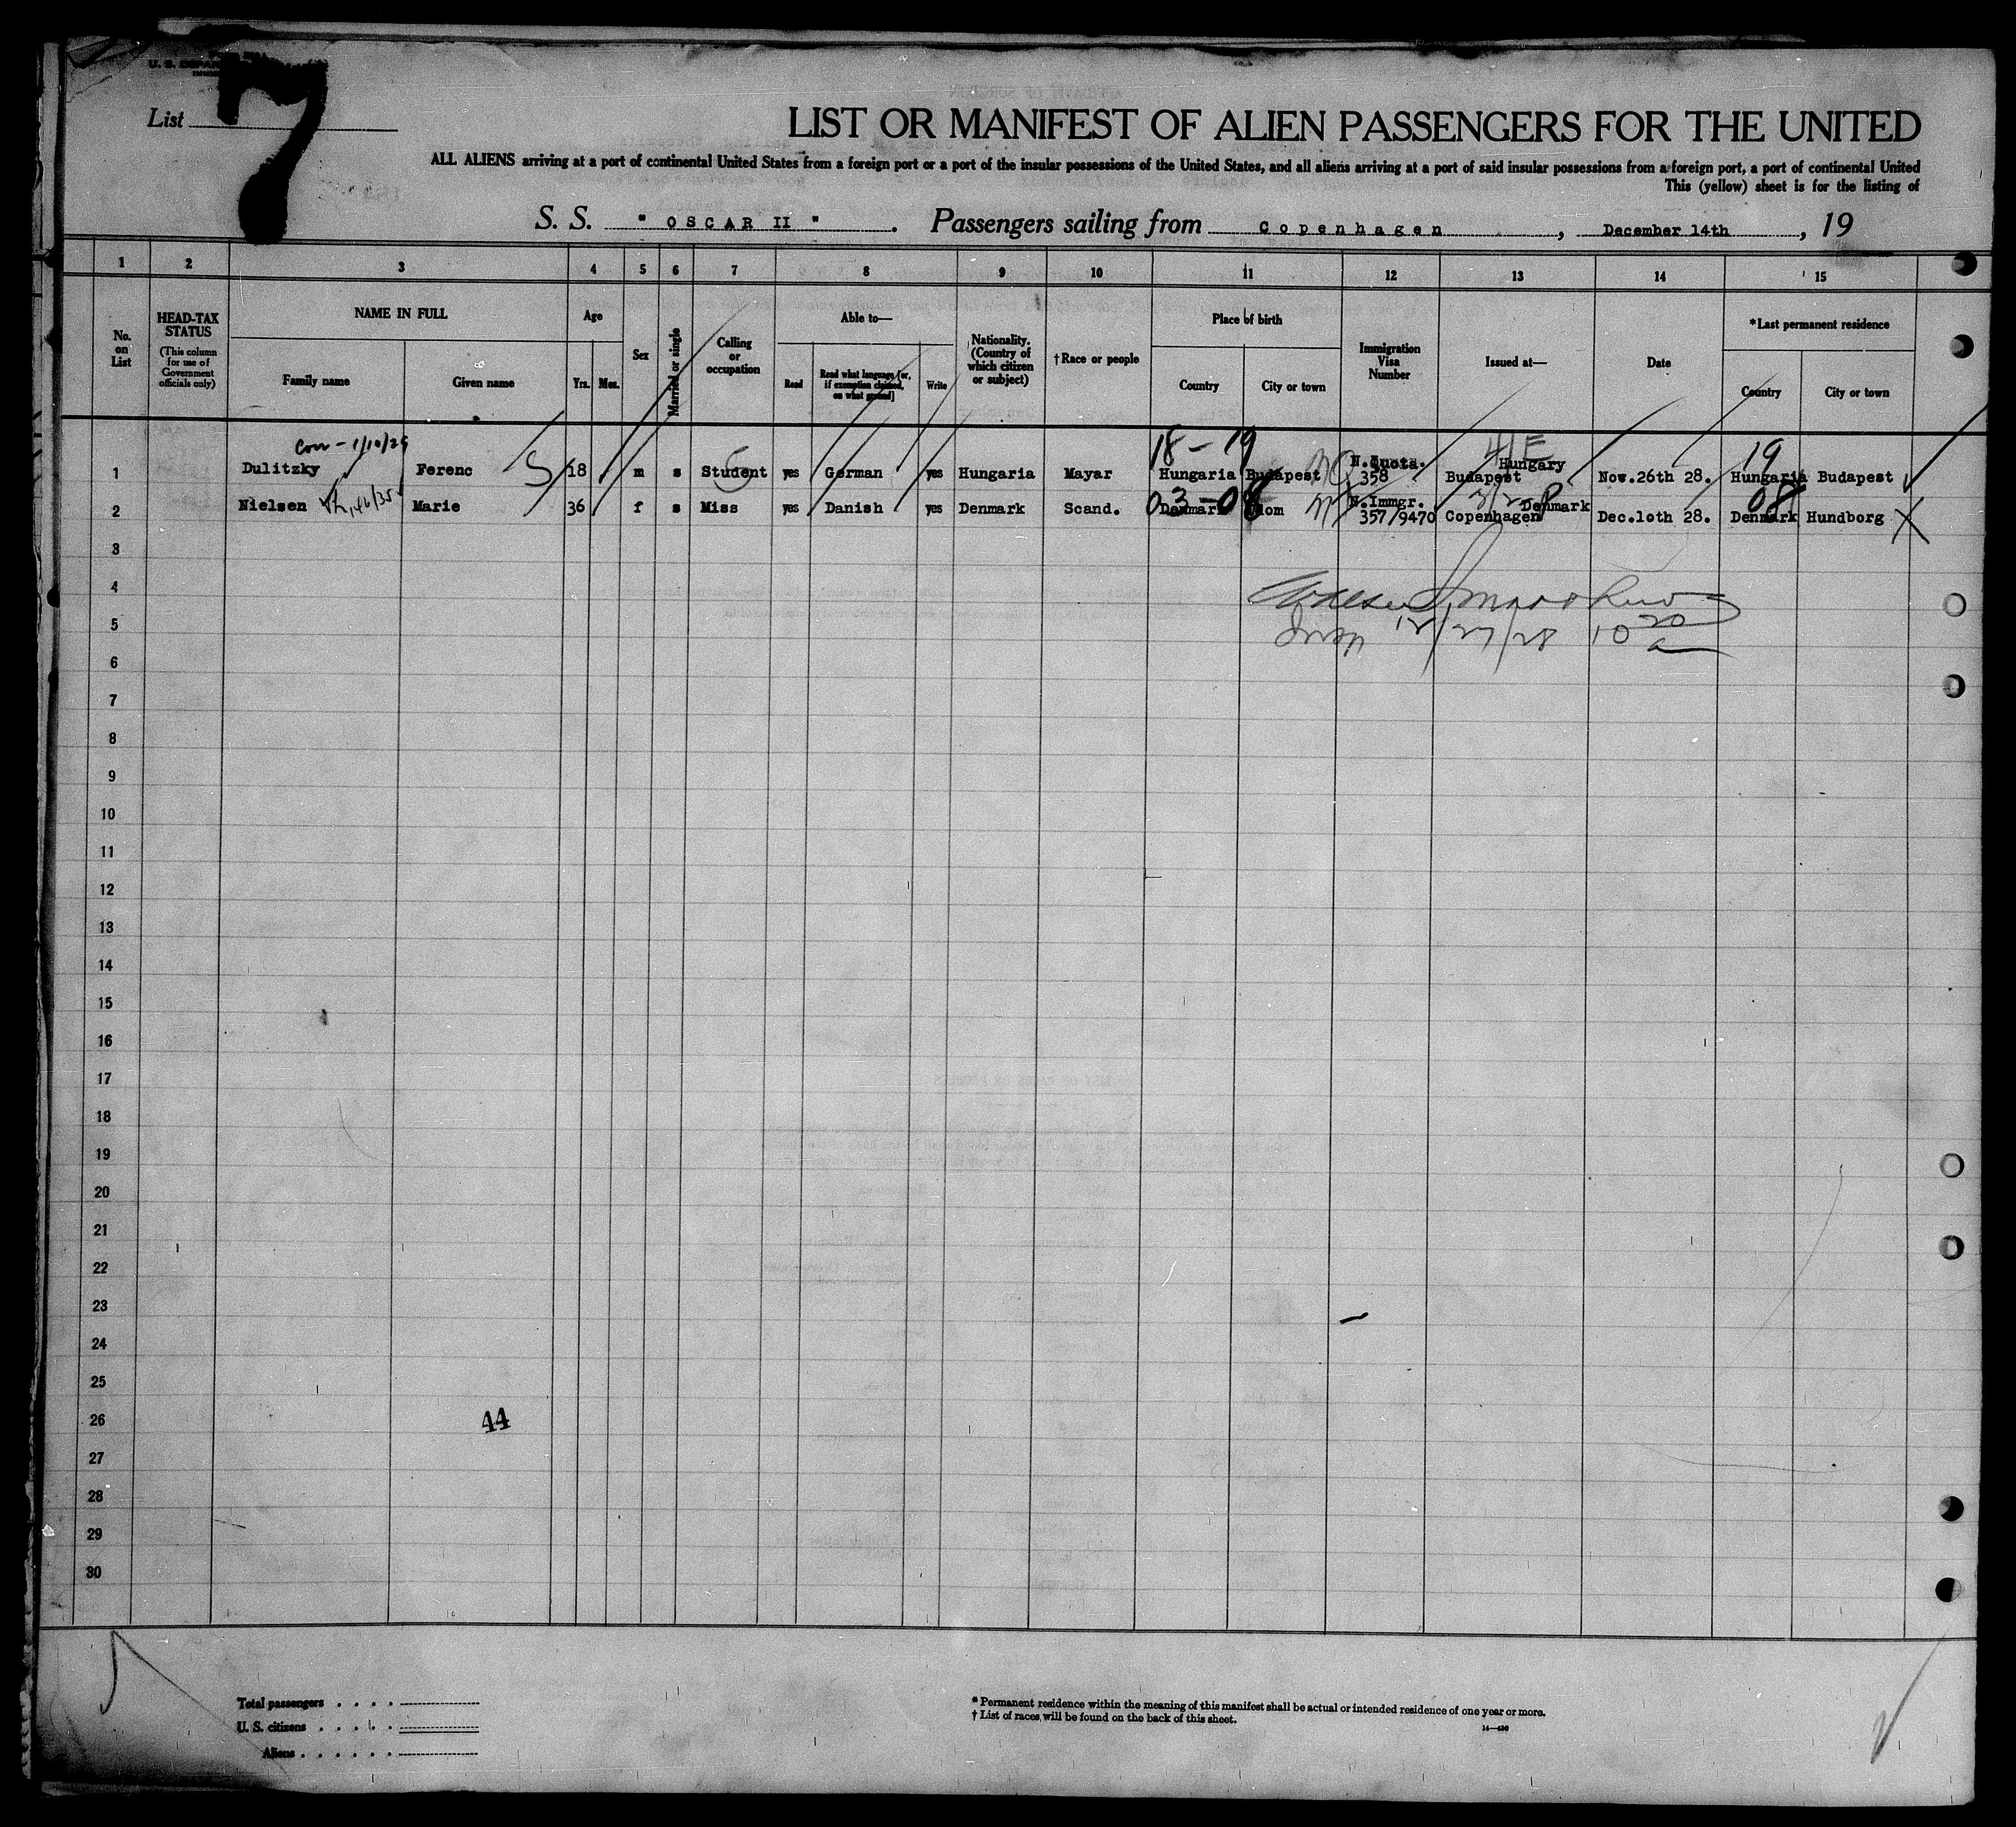 U. S.
List 7
LIST OR MANIFEST OF ALIEN PASSENGERS FOR THE UNITED
ALL ALIENS arriving at a port of continental United States from a foreign port or a port of the insular possessions of the United States, and all aliens arriving at a port of said insular possessions from a foreign port, a port of continental United
This (yellow) sheet is for the listing of
S. S. " OSCAR II " . Passengers sailing from Copenhagen , December 14th , 19
1 2 3 4 5 6 7 8 9 10 11 12 13 14 15
No. on List
HEAD-TAX STATUS
(This column for use of Government officials only)
NAME IN FULL
Family name
Given name
Age
Yrs. Mos.
Sex
Married or single
Calling or occupation
Able to—
Read
Read what language [or, if exemption claimed, on what ground]
Write
Nationality. (Country of which citizen or subject)
†Race or people
Place of birth
Country
City or town
Immigration Visa Number
Issued at—
Date
*Last permanent residence
Country
City or town
con - 1/10/29
18-19
4/E
19
1 Dulitzky Ferenc S 18 m s Student yes German yes Hungaria Mayar Hungaria Budapest NQ N.Quota. 358 Budapest Hungary Nov.26th 28. Hungaria Budapest
03-08
08
2 Nielsen Marie 36 f s Miss yes Danish yes Denmark Scand. Denmark N.Immgr. 357/9470 Copenhagen Denmark Dec.10th 28. Denmark Hundborg X
3
4
5
12/27/28 10 20 a
6
7
8
9
10
11
12
13
14
15
16
17
18
19
20
21
22
23
24
25
26
44
27
28
29
30
Total passengers . . . .
U. S. citizens . . . .
Aliens . . . . . .
* Permanent residence within the meaning of this manifest shall be actual or intended residence of one year or more.
† List of races will be found on the back of this sheet.
14—430